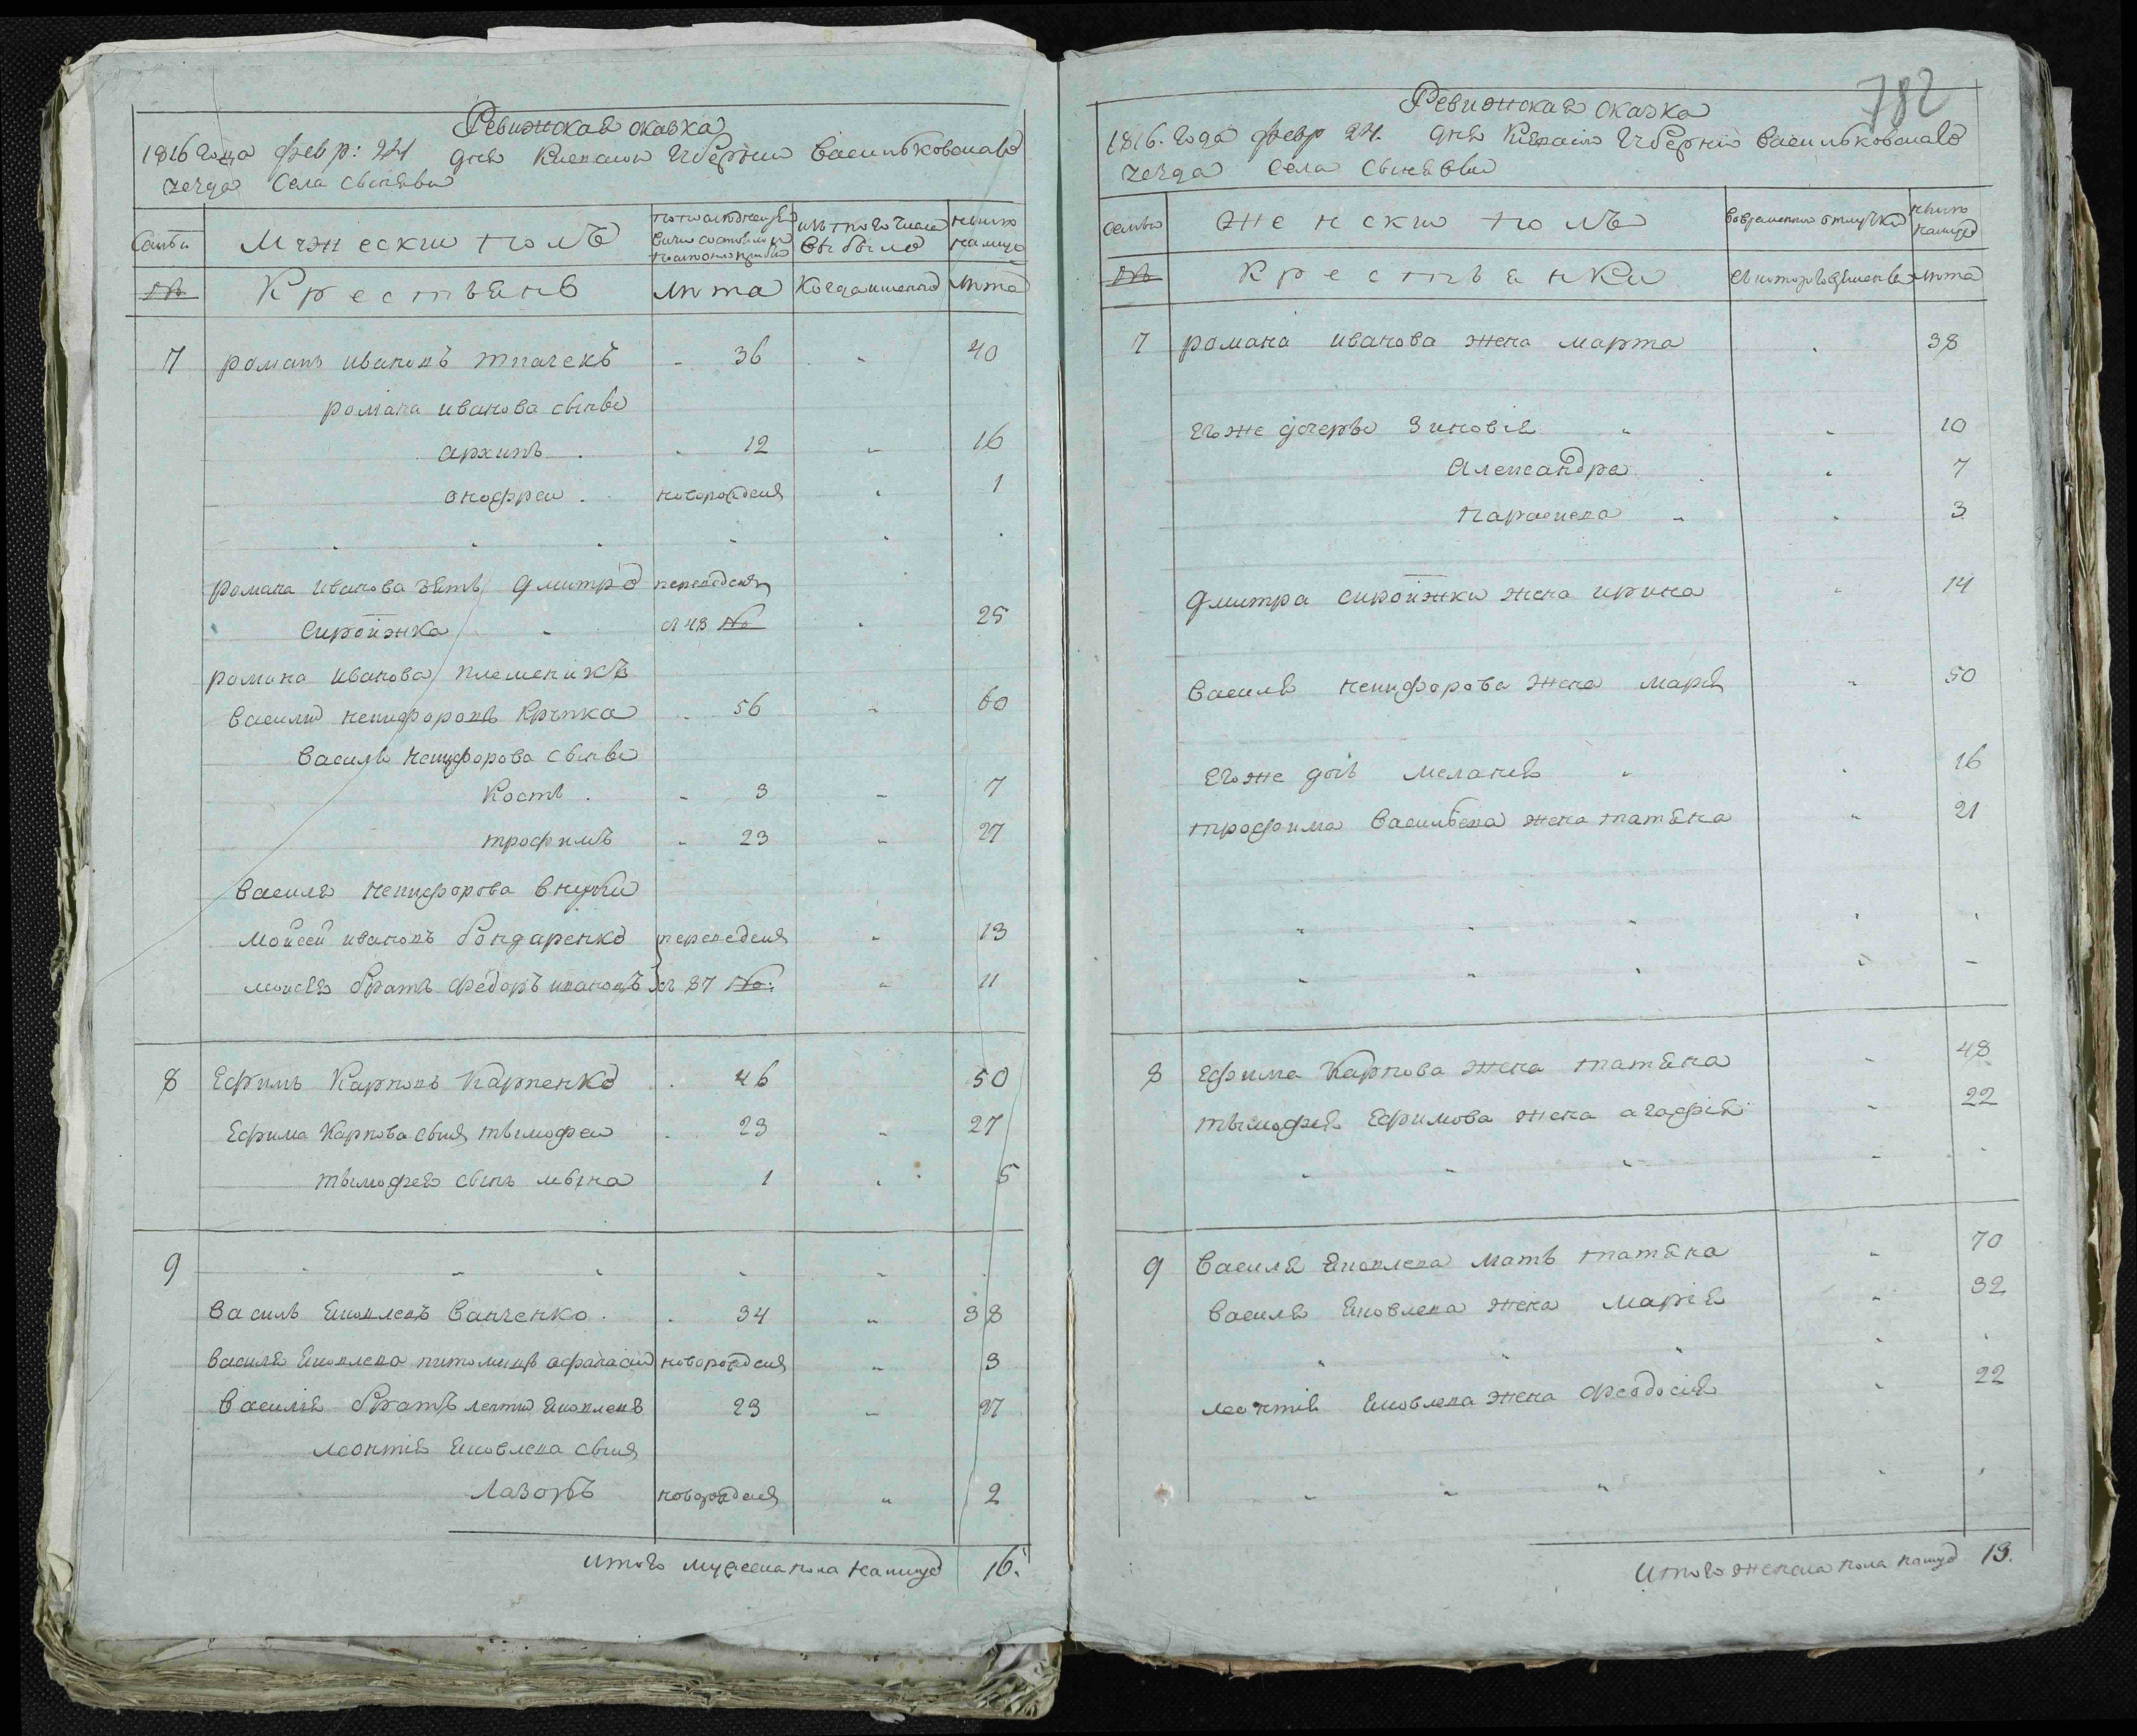 Ревижская сказка
1816 года февр: 24 дня Киевской Губернии Васильковскаго
уезда Села Сынявы
Семьи Мужески полъ по последней ревизии состояло и после оной прибыло изъ того числа выбыло ныне на лицо
№ Крестьянъ лѣта Когда именно лѣта
7 романъ ивановъ ткачекъ 36 40
романа иванова сынъ
архипъ 12 16
онофреи новорожденъ 1
романа иванова зять Дмитро переведенъ
Сироижка съ 48 № 25
романа иванова племеникъ
Василий никифоровъ Крупка 56 60
Василя никифорова сынъ
Кость 3 7
трофимъ 23 27
Василя никифорова внуки
мойсей ивановъ бондаренко переведены 13
мойсея братъ федоръ ивановъ съ 87 № 11
8 Ефимъ Карповъ Карпенко 46 50
Ефима Карпова сынъ тымофеи 23 27
тымофея сынъ мына 1 5
9
Василь Яковлевъ Ванченко 34 38
Василя Яковлева питомецъ афанасий новорожденъ 3
Василия братъ леонтий Яковлевъ 23 27
леонтия Яковлева сынъ
Лазоръ новорожденъ 2
Итого мужеска пола налицо 16.
782
Ревижская сказка
1816. года февр 24. дня Киевской Губернии Васильковскаго
уезда Села Сынявы
семьи женски полъ во временной отлучке ныне налицо
№ Крестьянки съ которого времени лѣта
7 романа иванова жена марта 38
Его же дочеръ Зиновия 10
Александра 7
Параскева 3
Дмитра сироижки жена ирина 14
Василя никифорова жена мария 50
Его же дочь мелания 16
трофима Васильева жена татяна 21
8 Ефима Карпова жена татяна 48
тымофея Ефимова жена агафия 22
9 Василя Яковлева мать татяна 70
Василя Яковлева жена Мария 32
леонтия Яковлева жена феодосия 22
Итого женска пола налицо 13.